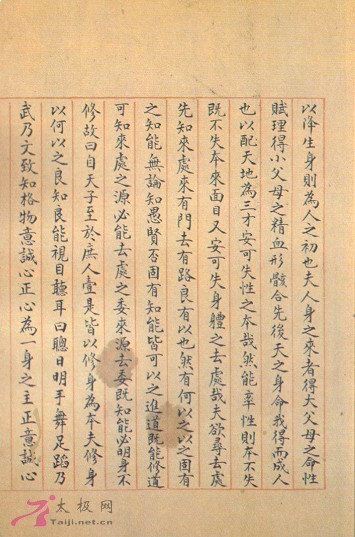 以降生身則為人之初也夫人身之來者得大父母之命性
賦理得小父母之精血形骸合先後天之身命我得而成人
也以配天地為三才安可失性之本哉然能率性則本不失
既不失本來面目又安可失身體之去處哉夫欲尋去處
先知來處來有門去有路良有以也然有何以之以之固有
之知能無論知愚賢否固有知能皆可以之進道既能修道
可知來處之源必能去處之委來源去委既知能必明身不
修故曰自天子至於庶人壹是皆以修身為本夫修身
以何以之良知良能視目聽耳曰聰曰明手舞足蹈乃
武乃文致知格物意誠心正心為一身之主正意誠心
太极网
Taiji.net.cn